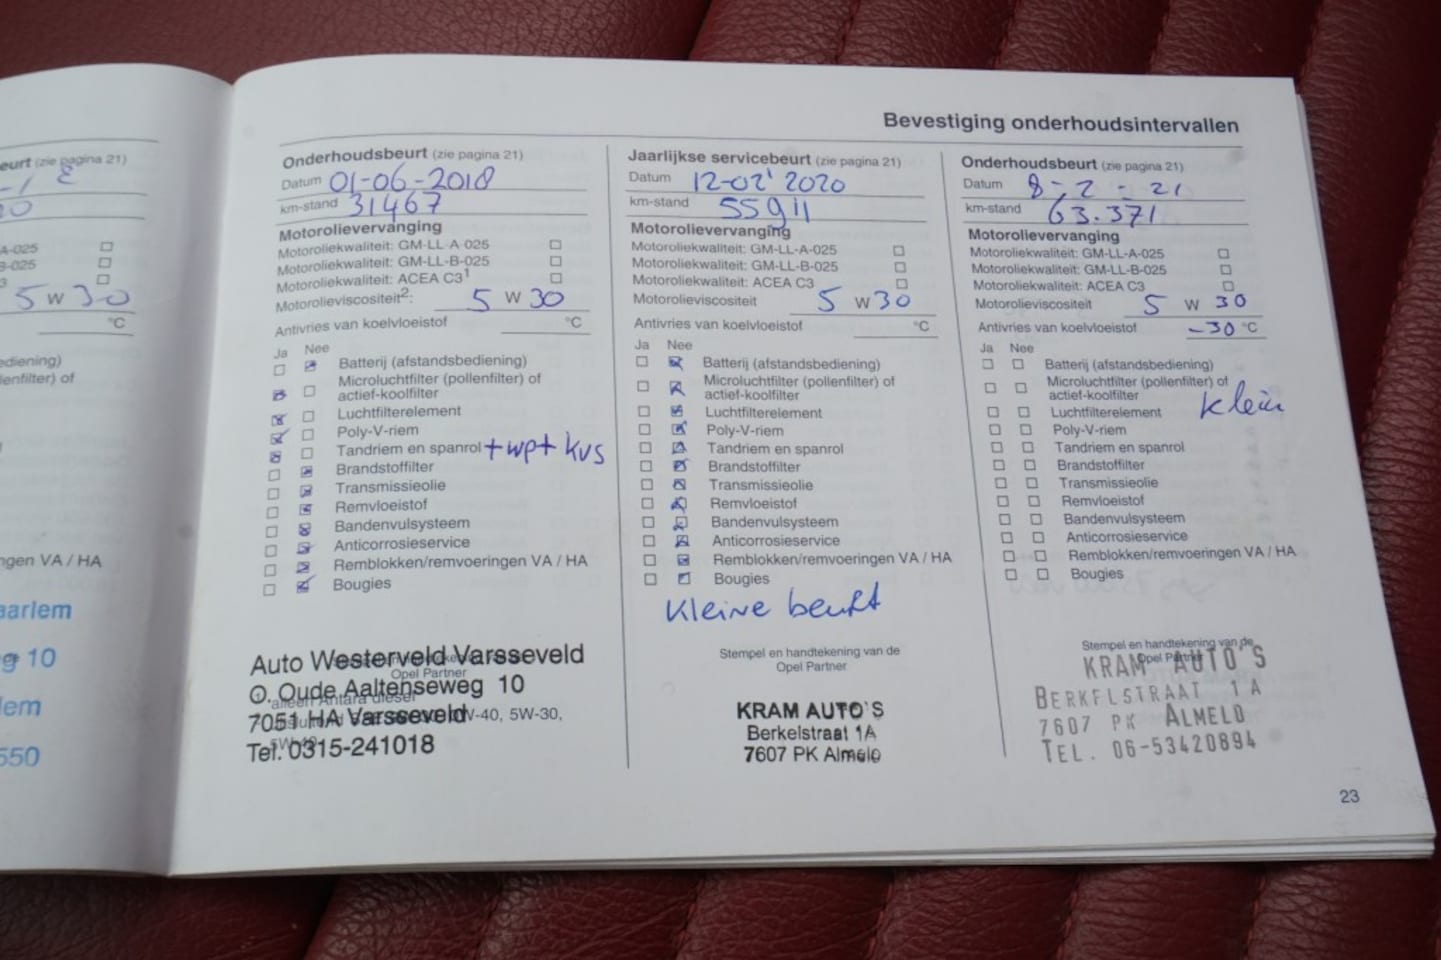 Bevestiging onderhoudsintervallen
eurt (zie pagina 21)
A-025
B-025
5 W 30
°C
ediening)
enfilter) of
ngen VA / HA
aarlem
g 10
lem
550
Onderhoudsbeurt (zie pagina 21)
Datum 01-06-2018
km-stand 31467
Motorolievervanging
Motoroliekwaliteit: GM-LL-A-025
Motoroliekwaliteit: GM-LL-B-025
Motoroliekwaliteit: ACEA C3¹
Motorolieviscositeit²: 5 W 30
Antivries van koelvloeistof °C
Ja Nee
Batterij (afstandsbediening)
Microluchtfilter (pollenfilter) of
actief-koolfilter
Luchtfilterelement
Poly-V-riem
Tandriem en spanrol + wp + kvs
Brandstoffilter
Transmissieolie
Remvloeistof
Bandenvulsysteem
Anticorrosieservice
Remblokken/remvoeringen VA / HA
Bougies
Auto Westerveld Varsseveld
Opel Partner
O. Oude Aaltenseweg 10
alleen Antara diesel
7051 HA Varsseveld W-40, 5W-30,
Tel. 0315-241018
Jaarlijkse servicebeurt (zie pagina 21)
Datum 12-02' 2020
km-stand 55911
Motorolievervanging
Motoroliekwaliteit: GM-LL-A-025
Motoroliekwaliteit: GM-LL-B-025
Motoroliekwaliteit: ACEA C3
Motorolieviscositeit 5 W 30
Antivries van koelvloeistof °C
Ja Nee
Batterij (afstandsbediening)
Microluchtfilter (pollenfilter) of
actief-koolfilter
Luchtfilterelement
Poly-V-riem
Tandriem en spanrol
Brandstoffilter
Transmissieolie
Remvloeistof
Bandenvulsysteem
Anticorrosieservice
Remblokken/remvoeringen VA / HA
Bougies
Kleine beurt
Stempel en handtekening van de
Opel Partner
KRAM AUTO'S
Berkelstraat 1A
7607 PK Almelo
Onderhoudsbeurt (zie pagina 21)
Datum 8-2-21
km-stand 63.371
Motorolievervanging
Motoroliekwaliteit: GM-LL-A-025
Motoroliekwaliteit: GM-LL-B-025
Motoroliekwaliteit: ACEA C3
Motorolieviscositeit 5 W 30
Antivries van koelvloeistof -30 °C
Ja Nee
Batterij (afstandsbediening)
Microluchtfilter (pollenfilter) of
actief-koolfilter
Klein
Luchtfilterelement
Poly-V-riem
Tandriem en spanrol
Brandstoffilter
Transmissieolie
Remvloeistof
Bandenvulsysteem
Anticorrosieservice
Remblokken/remvoeringen VA / HA
Bougies
Stempel en handtekening van de
Opel Partner
KRAM AUTO'S
BERKELSTRAAT 1A
7607 PK ALMELO
TEL. 06-53420894
23